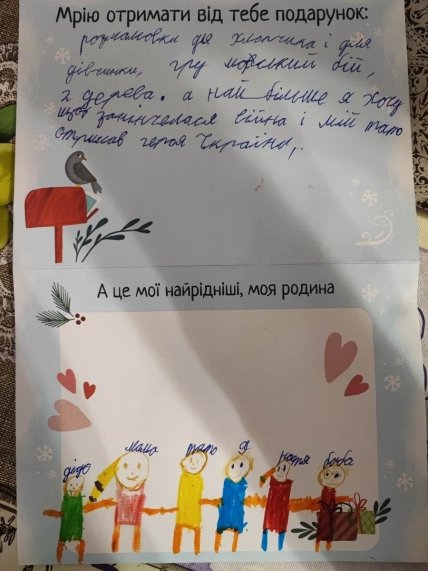 Мрію отримати від тебе подарунок:
розмальовки для хлопчика і для
дівчинки, гру морський бій,
з дерева. а най більше я хочу
щоб закінчелася війна і мій тато
отримав героя України,
А це мої найрідніші, моя родина
дідо мама тато я Надя баба